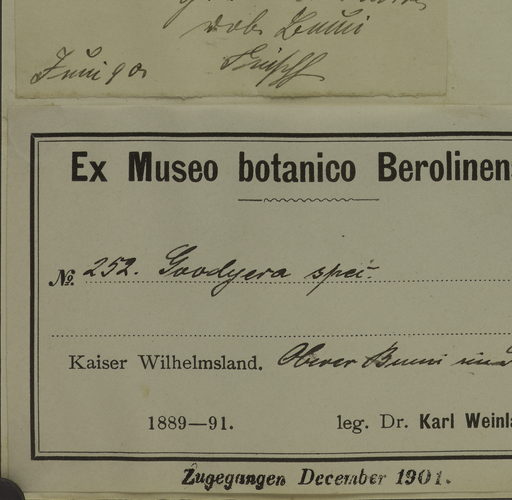 Juni 90
Ex Museo botanico Berolinens
№ 252. Goodyera spec.
Kaiser Wilhelmsland. Oberer Bumi und
1889—91. leg. Dr. Karl Weinla
Zugegangen December 1901.